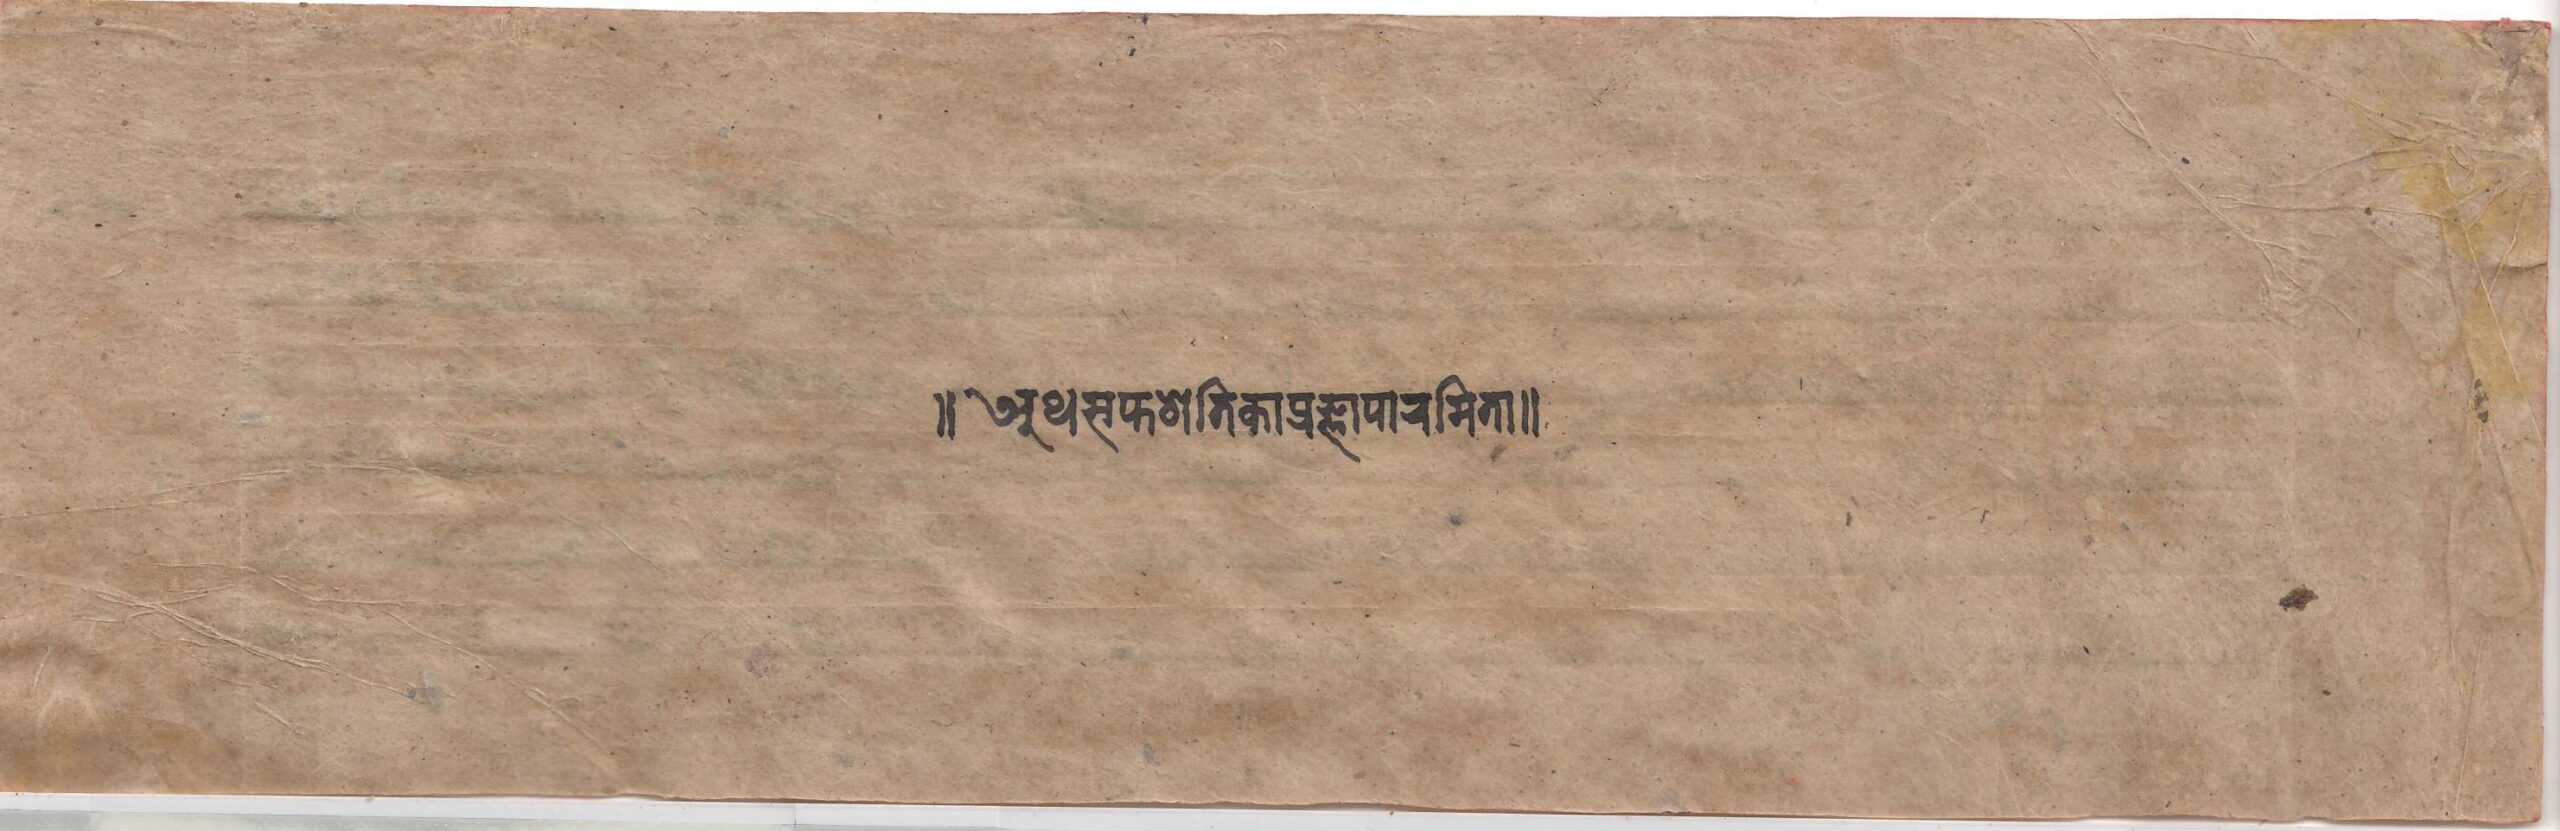 ॥ अथसप्तशतिकाप्रज्ञापारमिता॥